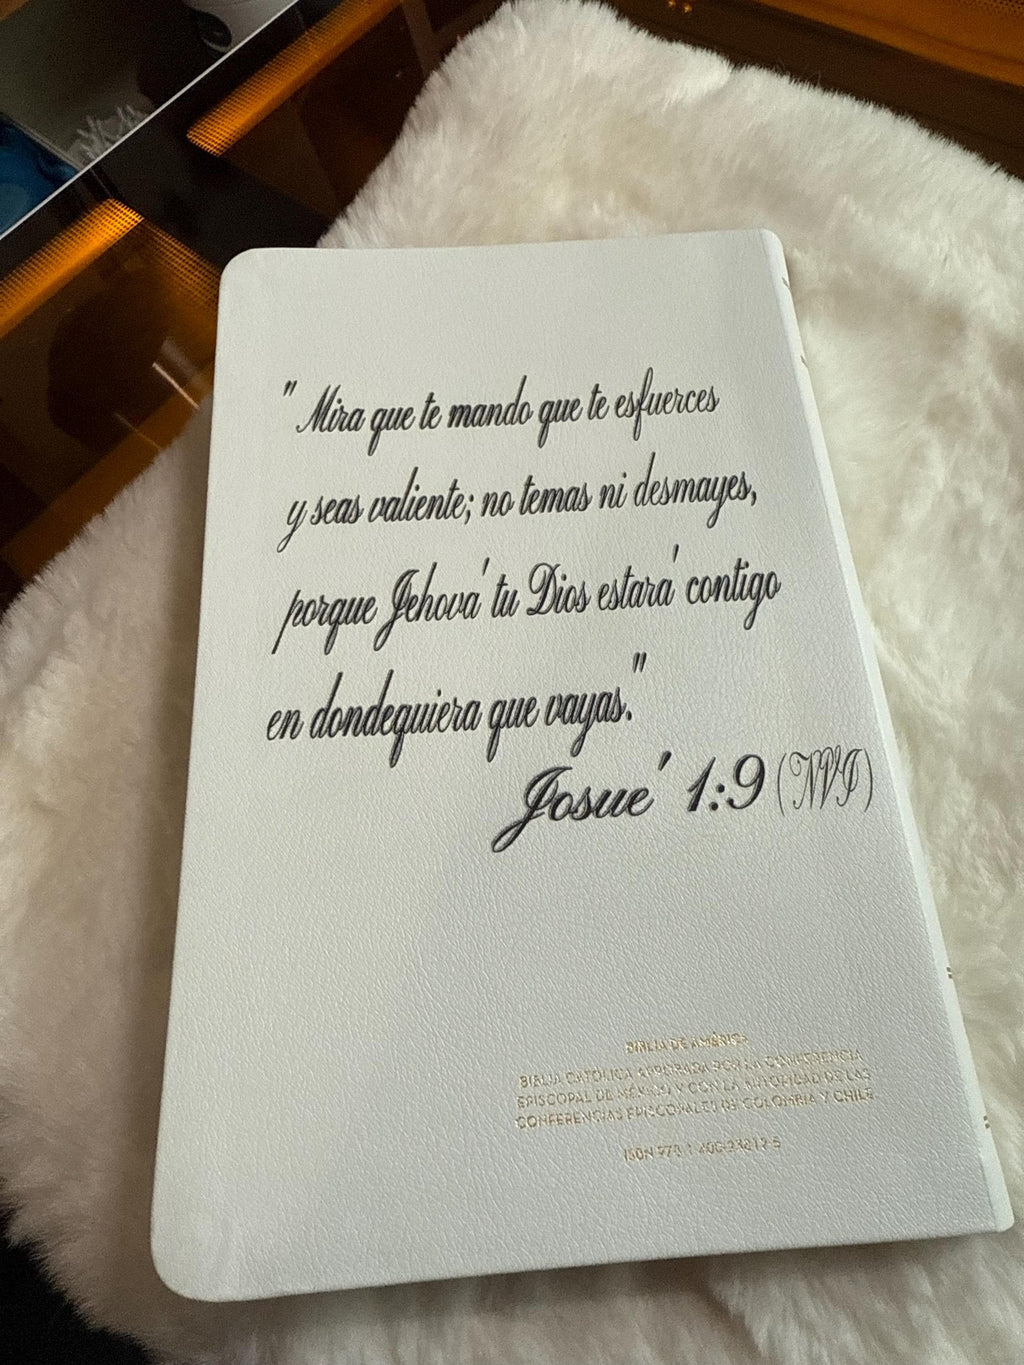 " Mira que te mando que te esfuerces
y seas valiente; no temas ni desmayes,
porque Jehova' tu Dios estara' contigo
en dondequiera que vayas."
Josue' 1:9 (NVI)
BIBLIA DE AMÉRICA
BIBLIA CATÓLICA APROBADA POR LA CONFERENCIA
EPISCOPAL DE MÉXICO Y CON LA AUTORIDAD DE LAS
CONFERENCIAS EPISCOPALES DE COLOMBIA Y CHILE
ISBN